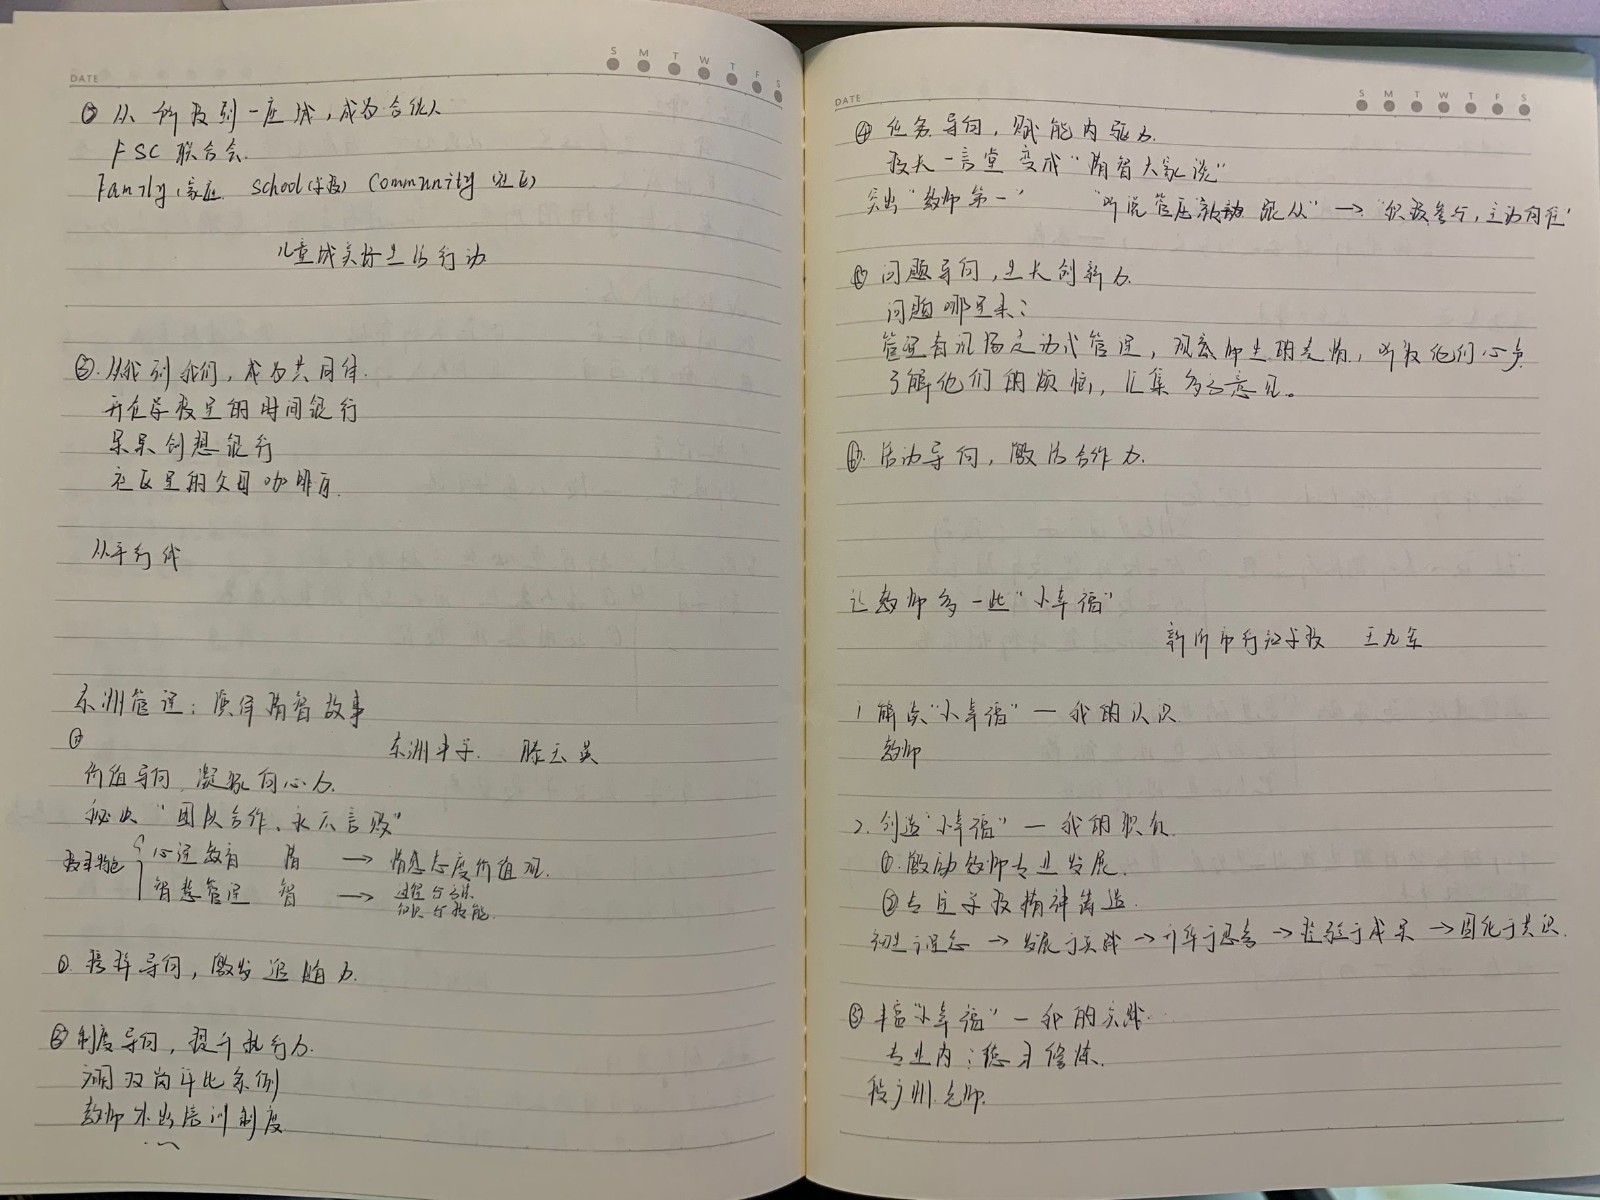 DATE
S M T W T F S
② 从学校到一座城，成为合伙人
FSC 联合会.
Family(家庭 school(学校) Community 社区)
儿童城美好生活行动
③. 从我到我们，成为共同体.
开在学校里的时间银行
呆呆创想银行
社区里的父母咖啡店.
从平行线
东洲管理：演绎情智故事
①
东洲中学.
价值导向，凝聚向心力.
秘诀"团队合作、永不言败"
心理教育 情 → 情感态度价值观.
智慧管理 智 → 过程与方法.
知识与技能.
② 榜样导向，激发追随力.
③ 制度导向，提升执行力.
双岗评比条例
教师外出培训制度
DATE
S M T W T F S
④ 任务导向，赋能内驱力.
校长一言堂变成"情智大家说"
突出"教师第一" "听说管压被动跟从" → "积极参与，主动向往"
⑤ 问题导向，生长创新力.
问题哪里来：
管理者现场走动式管理，观察师生的表情，听取他们心声
了解他们的烦恼，汇集多方意见。
⑥. 活动导向，激活合作力.
让教师多一些"小幸福"
新沂市行知学校
1 解读"小幸福" — 我的认识
教师
2. 创造"小幸福" — 我的职责.
①. 激励教师专业发展.
② 专注学校精神铸造.
初生于理念 → 发展于实践 → 升华于思考 → 检验于成果 → 固化于共识.
③ 丰富"小幸福" — 我的实践..
专业内：练习修炼.